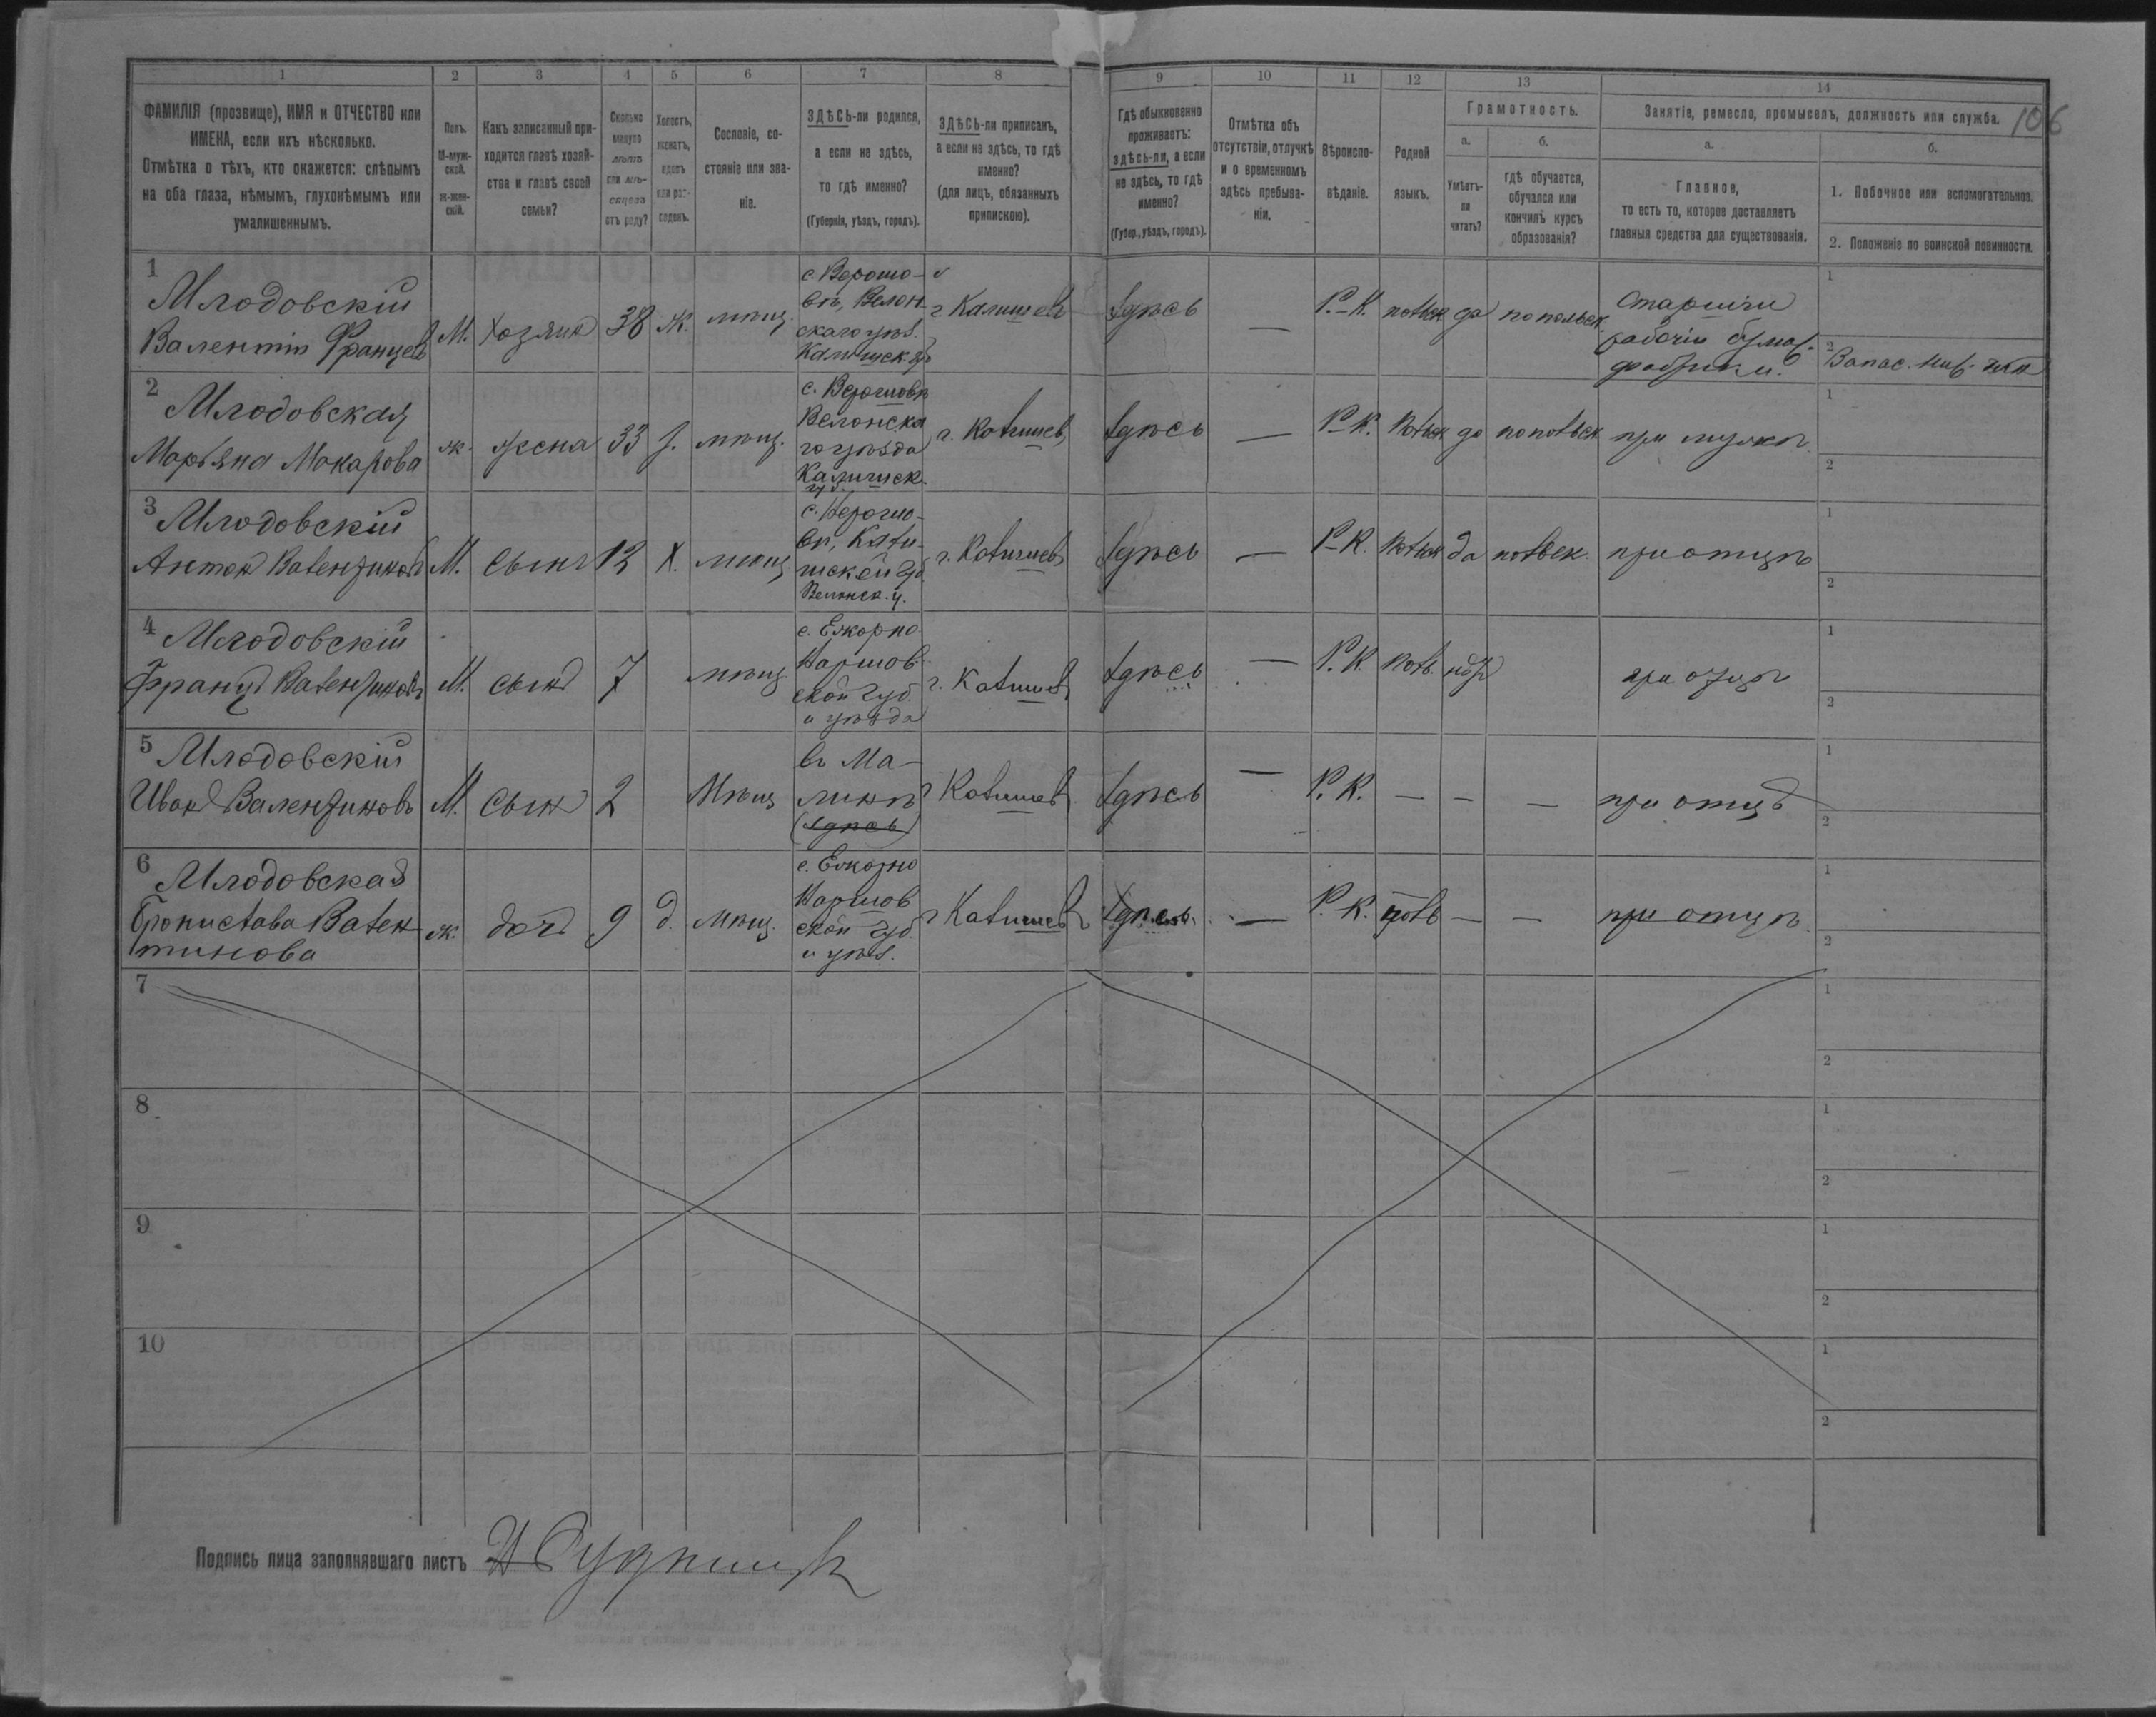 1 2 3 4 5 6 7 8 9 10 11 12 13 14
106
ФАМИЛІЯ (прозвище), ИМЯ и ОТЧЕСТВО или
ИМЕНА, если ихъ нѣсколько.
Отмѣтка о тѣхъ, кто окажется: слѣпымъ
на оба глаза, нѣмымъ, глухонѣмымъ или
умалишеннымъ.
Полъ.
М-муж-
ской.
ж-жен-
скій.
Какъ записанный при-
ходится главѣ хозяй-
ства и главѣ своей
семьи?
Сколько
минуло
лѣтъ
или мѣ-
сяцевъ
отъ роду?
Холостъ,
женатъ,
вдовъ
или раз-
веденъ.
Сословіе, со-
стояніе или зва-
ніе.
ЗДѢСЬ-ли родился,
а если не здѣсь,
то гдѣ именно?
(Губернія, уѣздъ, городъ).
ЗДѢСЬ-ли приписанъ,
а если не здѣсь, то гдѣ
именно?
(для лицъ, обязанныхъ
припискою).
Гдѣ обыкновенно
проживаетъ:
здѣсь-ли, а если
не здѣсь, то гдѣ
именно?
(Губер., уѣздъ, городъ).
Отмѣтка объ
отсутствіи, отлучкѣ
и о временномъ
здѣсь пребыва-
ніи.
Вѣроиспо-
вѣданіе.
Родной
языкъ.
Грамотность.
а.
Умѣетъ-
ли
читать?
б.
гдѣ обучается,
обучался или
кончилъ курсъ
образованія?
Занятіе, ремесло, промыселъ, должность или служба.
а.
Главное,
то есть то, которое доставляетъ
главныя средства для существованія.
б.
1. Побочное или вспомогательное.
2. Положеніе по воинской повинности.
1
Млодовскій
Валентін Францевъ
М. хозяинъ 38 ж. мѣщ.
с. Верошо-
вѣ, Велюн-
скаго уѣз.
Калишск. гу
г Калишевъ
здѣсь — Р.-К. польск да по польск.
Старшій
рабочій бумаж.
фабрики.
1
2
Запас. ниж. чин
2
Млодовская
Марьяна Макарова
ж. жена 33 з. мѣщ.
с. Верошовѣ
Велюнска
го уѣзда
Калишск.
губ.
г. Калишевъ
здѣсь — Р-К. польск да по польск при мужѣ
1
2
3
Млодовскій
Антон Валентиновъ
М. сынъ 12 Х. мѣщ
с. Верошо-
вѣ, Кали-
шской губ
Велюнск. у.
г. Калишевъ
здѣсь — Р-К. польск да польск. при отцѣ
1
2
4
Млодовскій
Францъ Валентиновъ
М. сынъ 7 мѣщ
с. Езіорно
Варшов-
ской губ.
и уѣзда
г. Калишевъ
здѣсь — Р. К. поль. нѣтъ при отцѣ
1
2
5
Млодовскій
Иванъ Валентиновъ
М. сынъ 2 Мѣщ
въ Ма-
линѣ
(здѣсь)
г Калишевъ
здѣсь — Р. К. — — — при отцѣ
1
2
6
Млодовская
Бронислава Вален-
тинова
ж. дочь 9 д. мѣщ.
с. Езіорно
Варшов
ской губ.
и уѣз.
г Калишевъ
здѣсь — Р. К. поль — — при отцѣ
1
2
7
1
2
8
1
2
9
1
2
10
1
2
Подпись лица заполнявшаго листъ